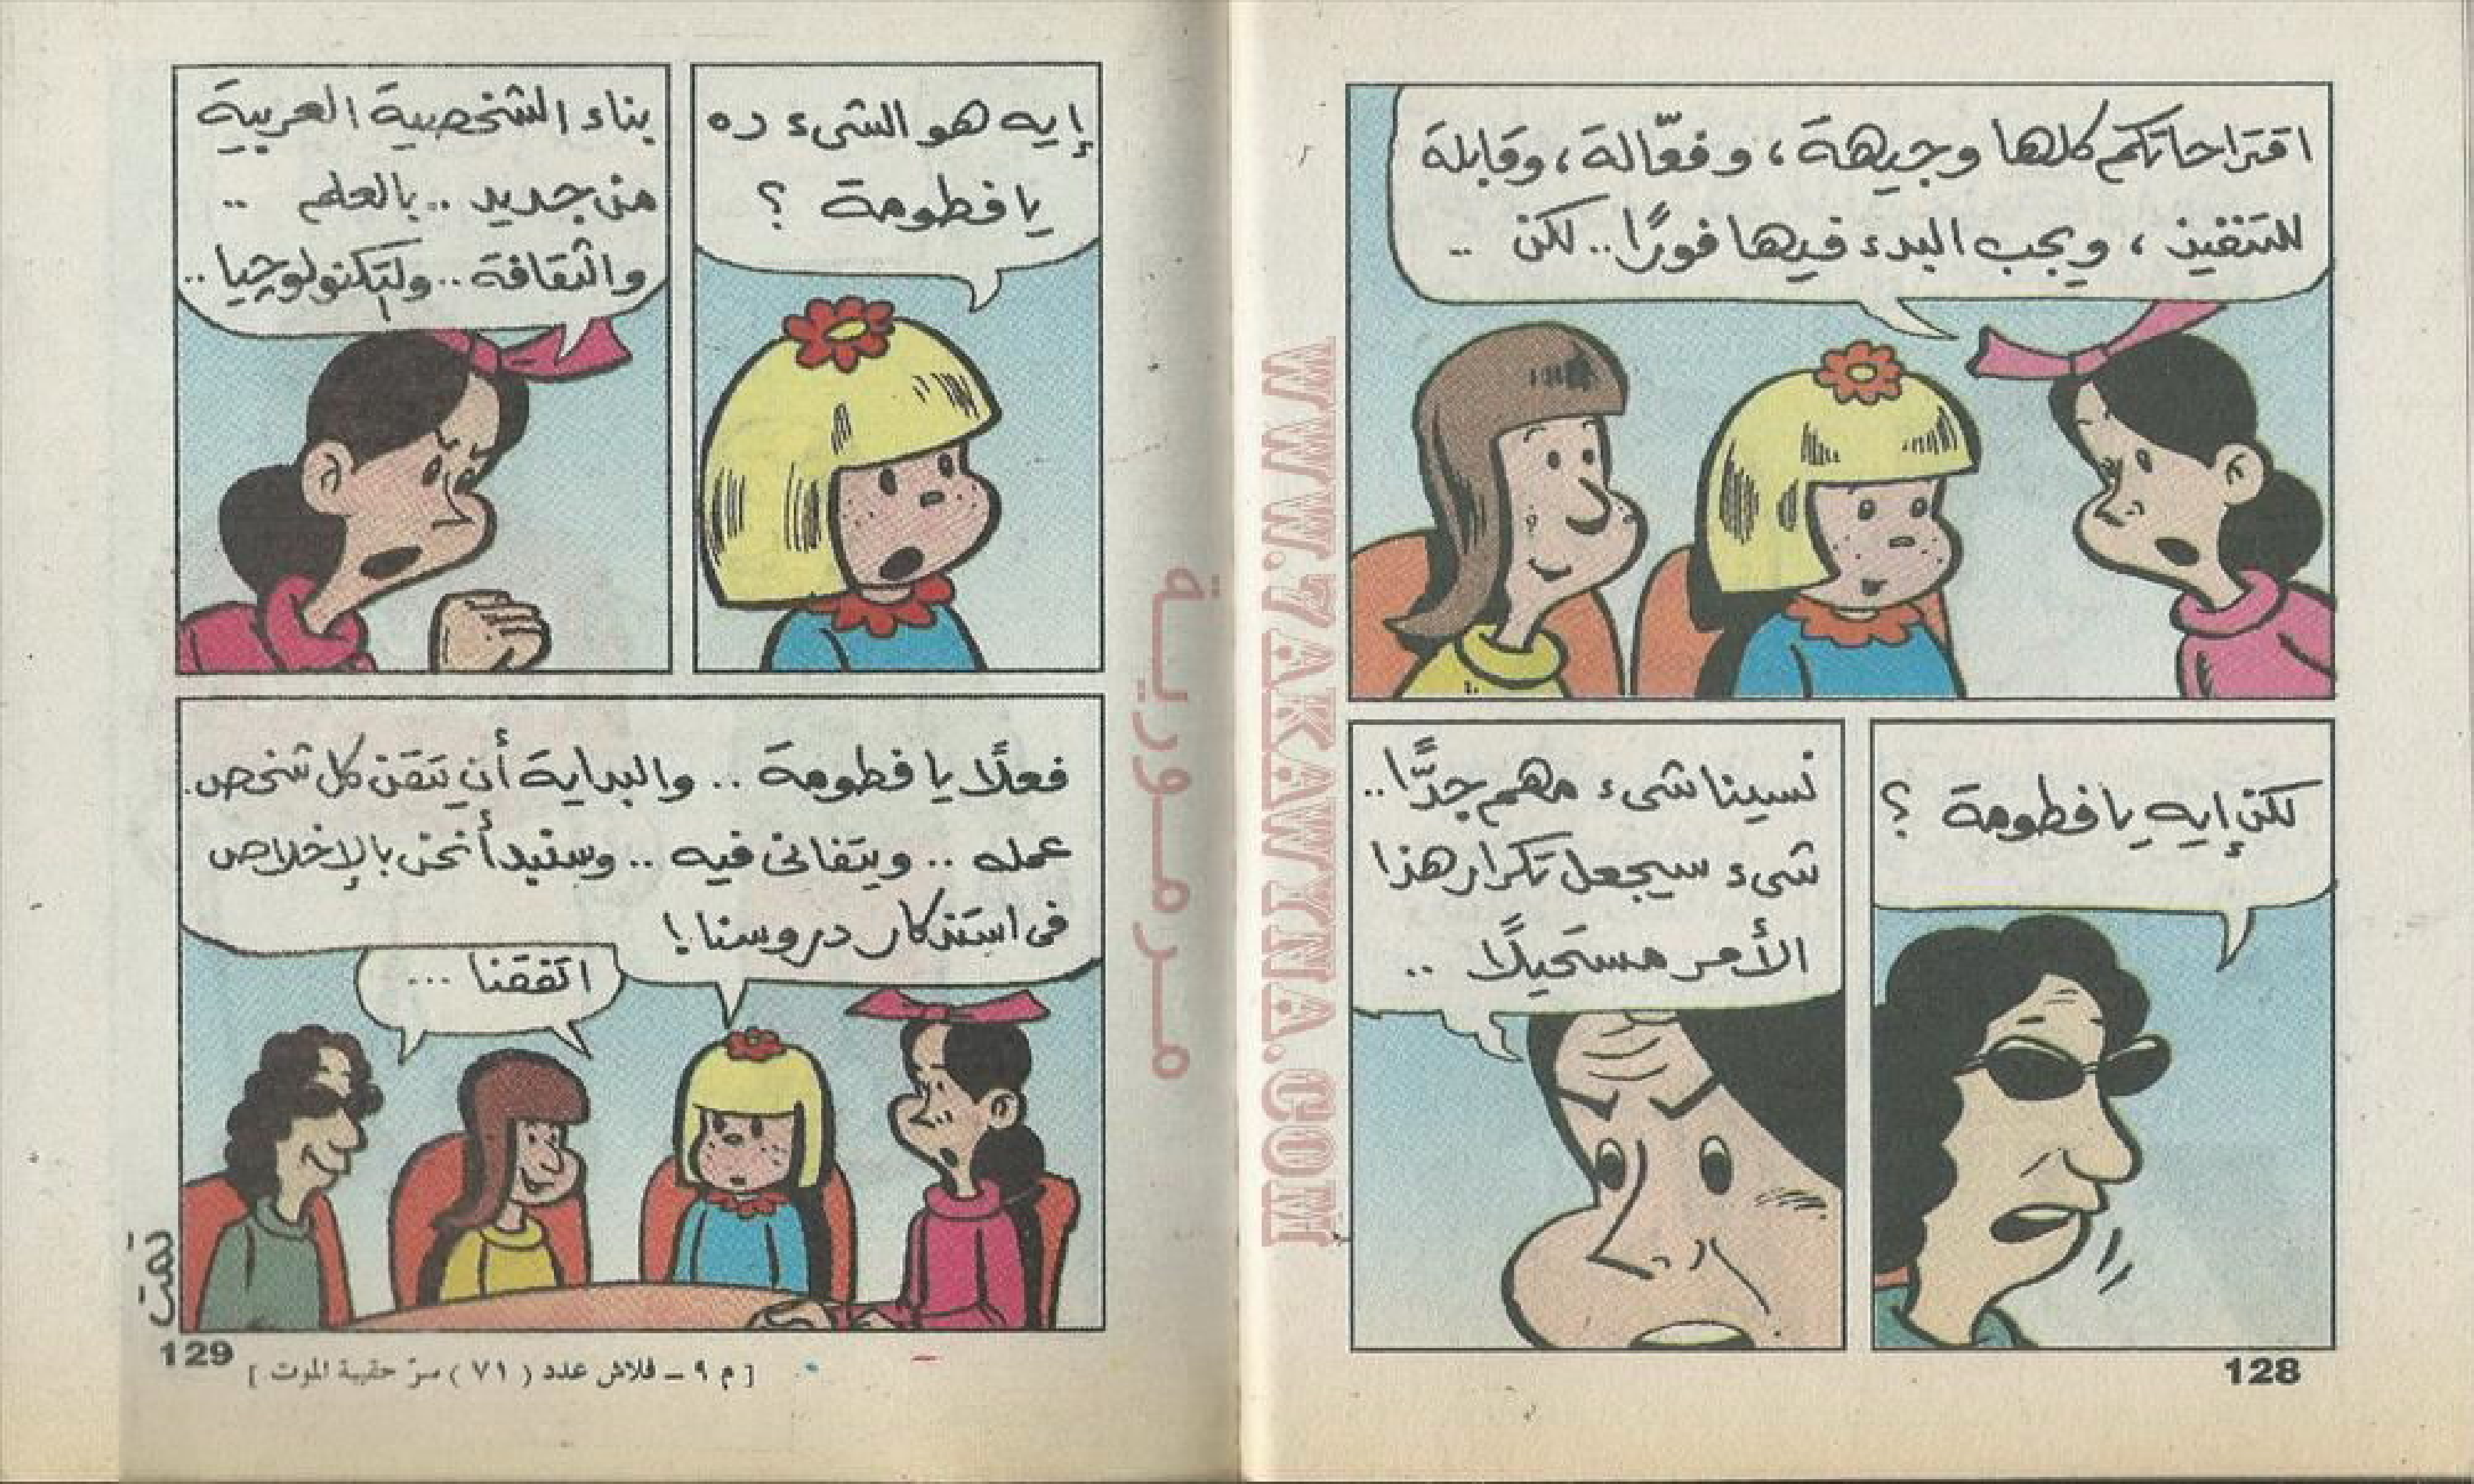 اقتراحاتكم كلها وجيهة، وفعّالة، وقابلة
للتنفيذ، ويجب البدء فيها فورًا.. لكن ..
لكن إيه يا فطومة ؟
نسينا شىء مهم جدًّا..
شىء سيجعل تكرار هذا
الأمر مستحيلًا ..
128
WWW.ZAKAWYNA.COM
مرمورية
إيه هو الشىء ده
يا فطومة ؟
بناء الشخصية العربية
من جديد .. بالعلم ..
والثقافة .. والتكنولوجيا ..
فعلًا يا فطومة .. والبداية أن يتقن كل شخص
عمله .. ويتفانى فيه .. وسنبدأ نحن بالإخلاص
فى استذكار دروسنا !
اتفقنا ...
تمت
129
[ م ٩ – فلاش عدد ( ٧١ ) سرّ حقيبة الموت ]